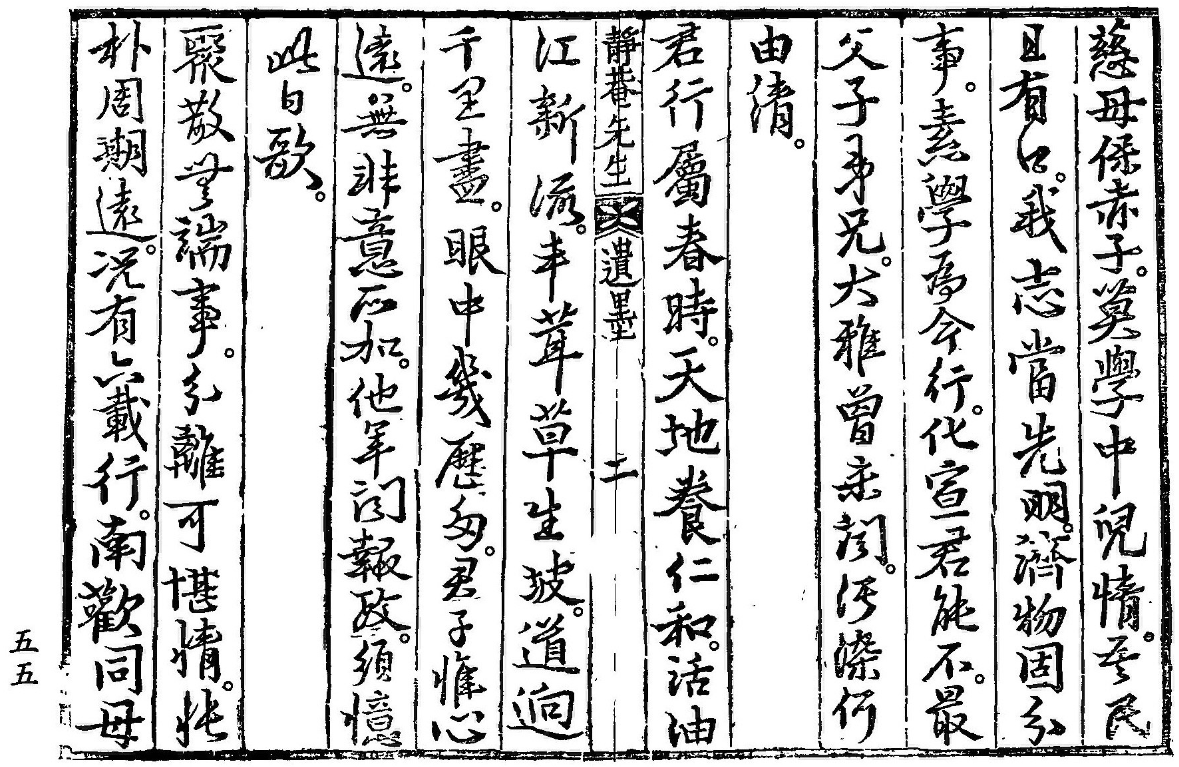 慈母保赤子。莫學中倪情。吾民
且有口。我志當先明。濟物固分
事。素學爲今行。化宣君能不。最
父子弟兄。大雅曾未聞。汚染何
由清。
君行屬春時。天地養仁和。活油
靜菴先生 遺墨 二
江新派。丰茸草生坡。道迥
千里盡。眼中幾歷多。君子惟心
遠。無非意所加。他年聞報政。須憶
此日歌。
聚散無端事。分離可堪情。悵
朴周瑚遠。況有六載行。南歡同母
五五